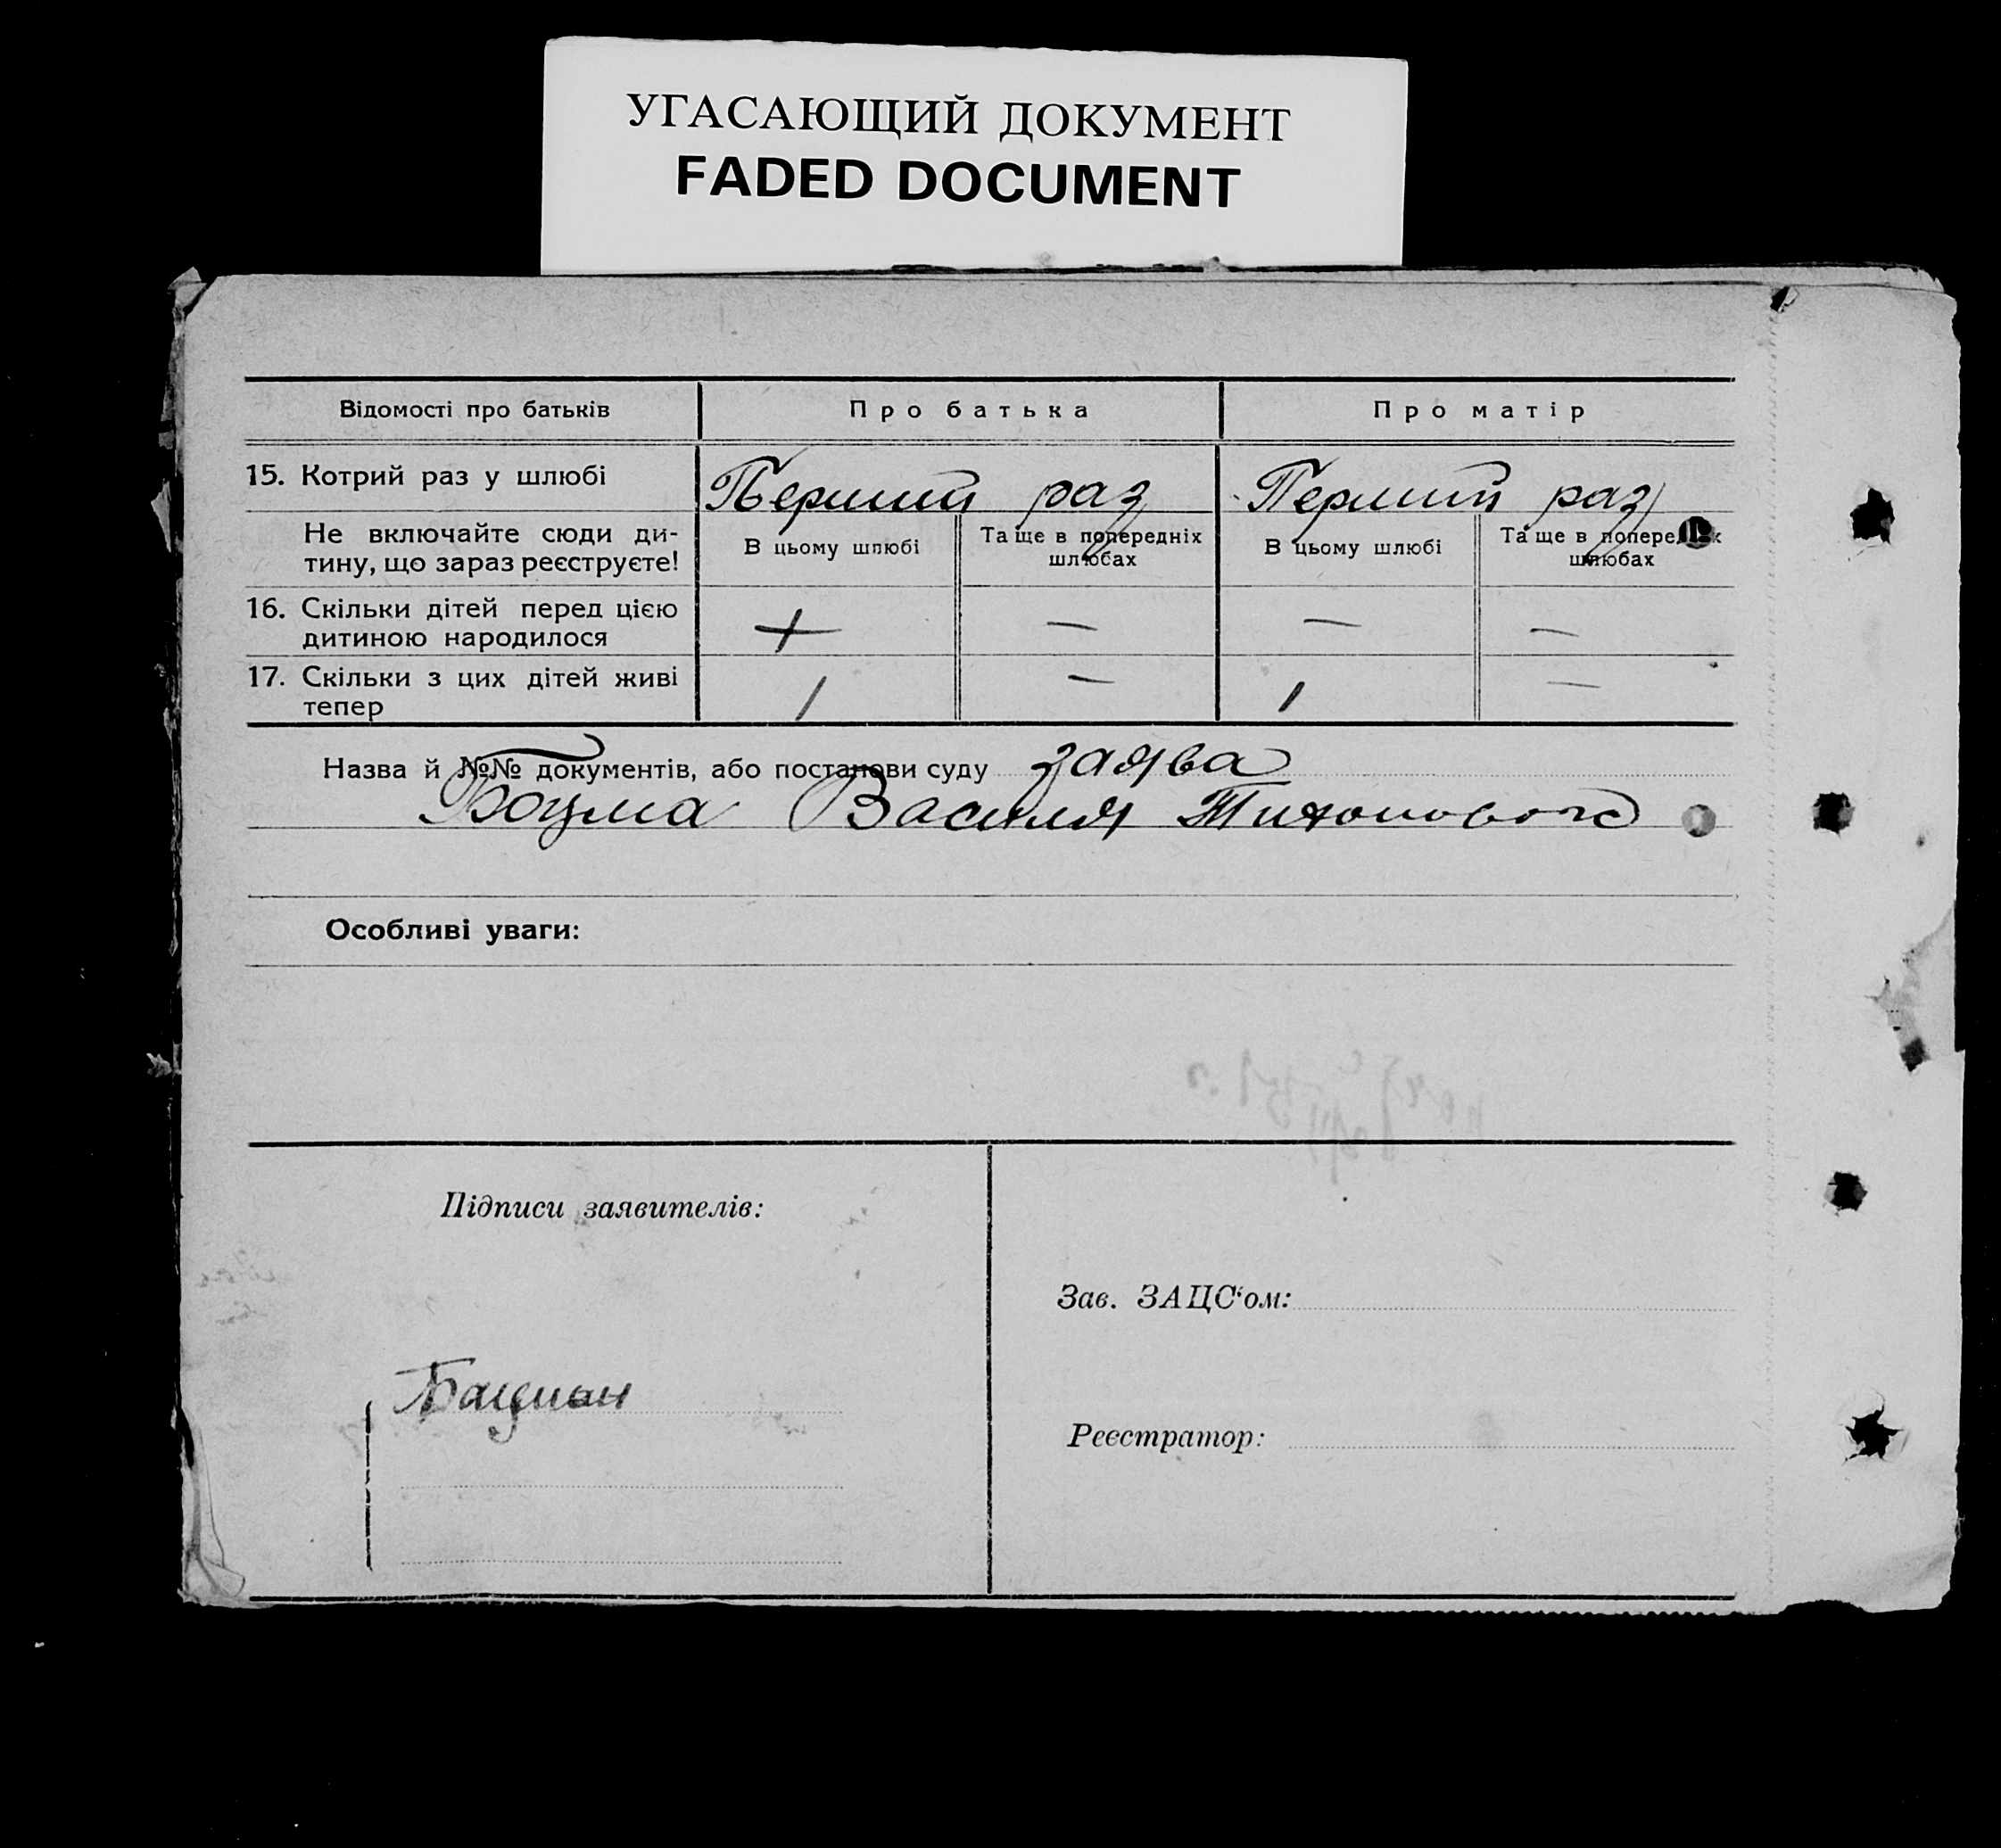 УГАСАЮЩИЙ ДОКУМЕНТ
FADED DOCUMENT
Відомості про батьків Про батька Про матір
15. Котрий раз у шлюбі Перший раз Перший раз
Не включайте сюди ди-
тину, що зараз реєструєте!
В цьому шлюбі Та ще в попередніх
шлюбах
В цьому шлюбі Та ще в попередніх
шлюбах
16. Скільки дітей перед цією
дитиною народилося
+ — — —
17. Скільки з цих дітей живі
тепер
1 — 1 —
Назва й №№ документів, або постанови суду заява
Боцма Василя Тихоновога
Особливі уваги:
Підписи заявителів:
Зав. ЗАЦС‘ом:
Реєстратор: